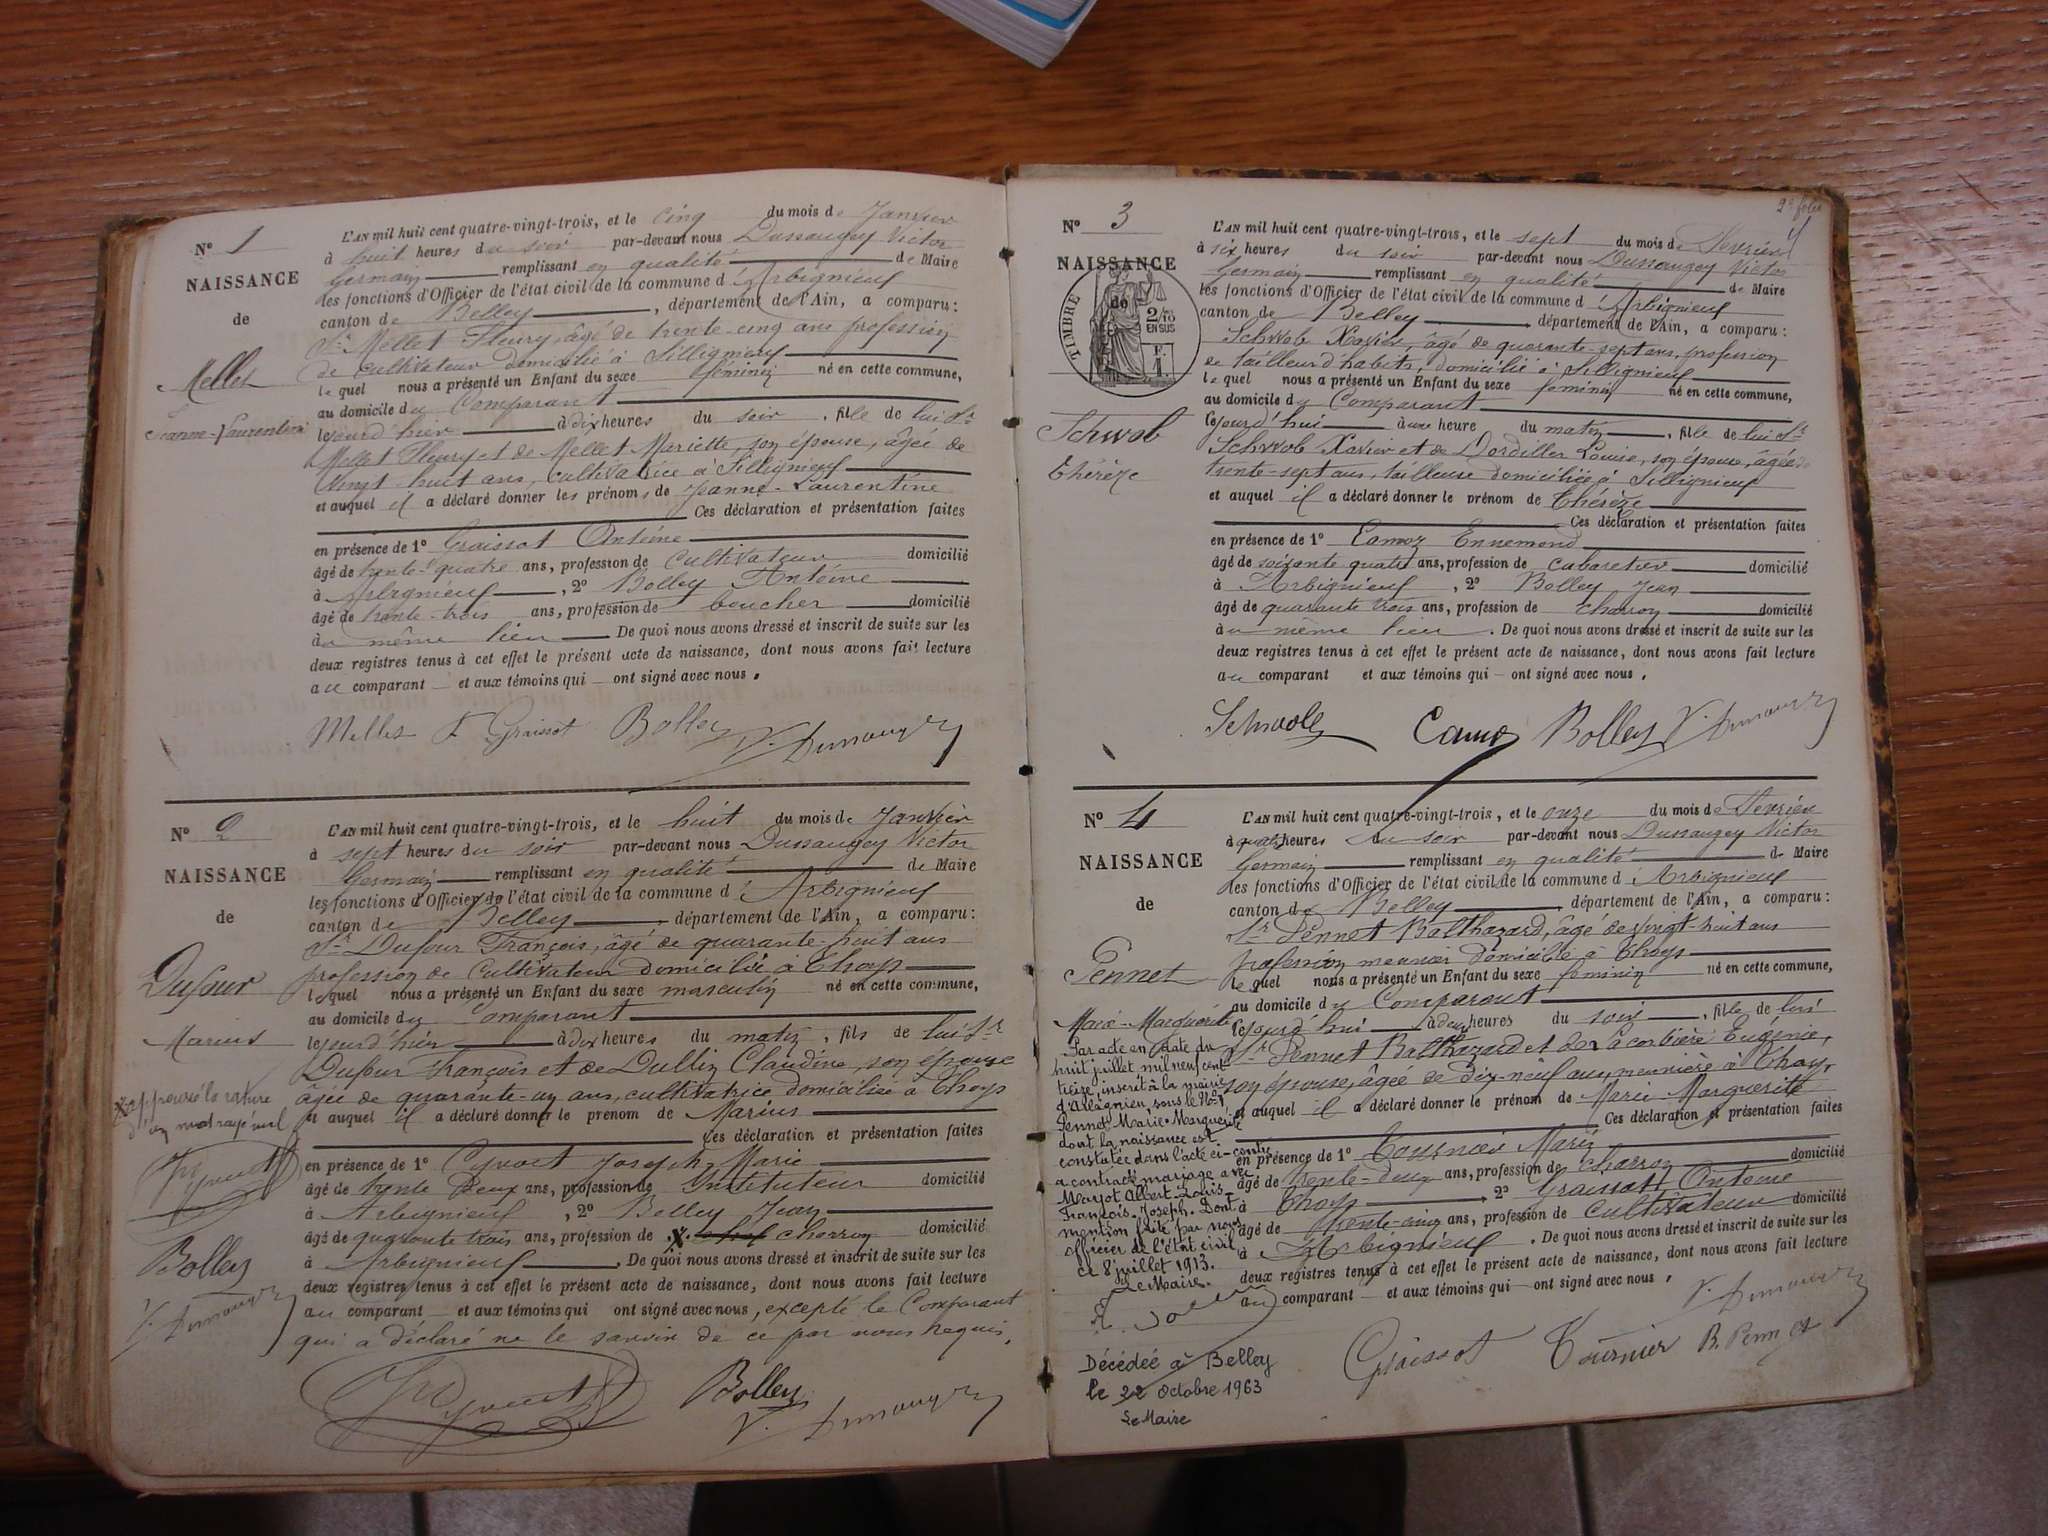 N° 1
NAISSANCE
de
Mellet
Jeanne-Laurentine
L'AN mil huit cent quatre-vingt-trois, et le cinq du mois de Janvier
à huit heures du soir par-devant nous Dussaugey Victor
Germain remplissant en qualité de Maire
les fonctions d'Officier de l'état civil de la commune d'Arbignieu
canton de Belley, département de l'Ain, a comparu:
Sr Mellet Fleury, âgé de trente-cinq ans profession
de cultivateur domicilié à Sillignieu
lequel nous a présenté un Enfant du sexe féminin né en cette commune,
au domicile du Comparant
le jourd'hier à dix heures du soir, fille de lui Sr
Mellet Fleury et de Mellet Mariette, son épouse, âgée de
vingt-huit ans, cultivatrice à Sillignieu
et auquel il a déclaré donner les prénoms de Jeanne-Laurentine
Ces déclaration et présentation faites
en présence de 1° Graissot Antoine
âgé de trente-quatre ans, profession de cultivateur domicilié
à Arbignieu, 2° Bolley Antoine
âgé de trente-trois ans, profession de boucher domicilié
au même lieu De quoi nous avons dressé et inscrit de suite sur les
deux registres tenus à cet effet le présent acte de naissance, dont nous avons fait lecture
au comparant et aux témoins qui ont signé avec nous.
Mellet F Graissot Bolley V. Dussaugey
N° 2
NAISSANCE
de
Dufour
Marius
X approuvé la rature
d'un mot rayé nul
Bolley
V. Dussaugey
L'AN mil huit cent quatre-vingt-trois, et le huit du mois de Janvier
à sept heures du soir par-devant nous Dussaugey Victor
Germain remplissant en qualité de Maire
les fonctions d'Officier de l'état civil de la commune d'Arbignieu
canton de Belley, département de l'Ain, a comparu:
Sr Dufour François, âgé de quarante-huit ans
profession de cultivateur domicilié à Thoys
lequel nous a présenté un Enfant du sexe masculin né en cette commune,
au domicile du Comparant
le jourd'hier à dix heures du matin, fils de lui Sr
Dufour François et de Dullin Claudine, son épouse
âgée de quarante-un ans, cultivatrice domiciliée à Thoys
et auquel il a déclaré donner le prénom de Marius
Ces déclaration et présentation faites
en présence de 1° Cyvoct Joseph Marie
âgé de trente deux ans, profession de Instituteur domicilié
à Arbignieu, 2° Bolley Jean
âgé de quarante trois ans, profession de X charron domicilié
à Arbignieu. De quoi nous avons dressé et inscrit de suite sur les
deux registres tenus à cet effet le présent acte de naissance, dont nous avons fait lecture
au comparant et aux témoins qui ont signé avec nous, excepté le Comparant
qui a déclaré ne le savoir de ce par nous requis.
Bolley
V. Dussaugey
2e folio
N° 3
NAISSANCE
de
TIMBRE
2/10
EN SUS
F.
1.
Schwob
Thérèze
L'AN mil huit cent quatre-vingt-trois, et le sept du mois de Février
à six heures du soir par-devant nous Dussaugey Victor
Germain remplissant en qualité de Maire
les fonctions d'Officier de l'état civil de la commune d'Arbignieu
canton de Belley, département de l'Ain, a comparu:
Schwob Xavier, âgé de quarante-sept ans, profession
de tailleur d'habits, domicilié à Sillignieu
lequel nous a présenté un Enfant du sexe féminin né en cette commune,
au domicile du Comparant
le jourd'hui à une heure du matin, fille de lui Sr
Schwob Xavier et de Dordiller Louise, son épouse, âgée de
trente-sept ans, tailleuse domiciliée à Sillignieu
et auquel il a déclaré donner le prénom de Thérèze
Ces déclaration et présentation faites
en présence de 1° Camoz Ennemond
âgé de soixante quatre ans, profession de cabaretier domicilié
à Arbignieu, 2° Bolley Jean
âgé de quarante trois ans, profession de charron domicilié
au même lieu. De quoi nous avons dressé et inscrit de suite sur les
deux registres tenus à cet effet le présent acte de naissance, dont nous avons fait lecture
au comparant et aux témoins qui ont signé avec nous.
Schwob Camoz Bolley V. Dussaugey
N° 4
NAISSANCE
de
Pennet
Marie-Marguerite
Par acte en date du
huit juillet mil neuf cent
treize, inscrit à la mairie
d'Arbignieu, sous le N° 1
Pennet Marie-Marguerite
dont la naissance est
constatée dans l'acte ci-contre
a contracté mariage avec
Marjot Albert-Louis-
François-Joseph. Dont
mention faite par nous
officier de l'état civil
ce 8 juillet 1913.
Le Maire.
Décédée à Belley
le 22 Octobre 1963
Le Maire
L'AN mil huit cent quatre-vingt-trois, et le onze du mois de Février
à quatre heures du soir par-devant nous Dussaugey Victor
Germain remplissant en qualité de Maire
les fonctions d'Officier de l'état civil de la commune d'Arbignieu
canton de Belley, département de l'Ain, a comparu:
Sr Pennet Balthazard, âgé de vingt-huit ans
profession meunier domicilié à Thoys
lequel nous a présenté un Enfant du sexe féminin né en cette commune,
au domicile du Comparant
le jourd'hui à deux heures du soir, fille de lui
Sr Pennet Balthazard et de Lacorbière Eugénie,
son épouse, âgée de dix-neuf ans, meunière à Thoys,
et auquel il a déclaré donner le prénom de Marie-Marguerite
Ces déclaration et présentation faites
en présence de 1° Tournier Marin
âgé de trente-deux ans, profession de charron domicilié
à Thoys, 2° Graissot Antoine
âgé de trente-cinq ans, profession de cultivateur domicilié
à Arbignieu. De quoi nous avons dressé et inscrit de suite sur les
deux registres tenus à cet effet le présent acte de naissance, dont nous avons fait lecture
au comparant et aux témoins qui ont signé avec nous.
V. Dussaugey
Graissot Tournier B. Pennet